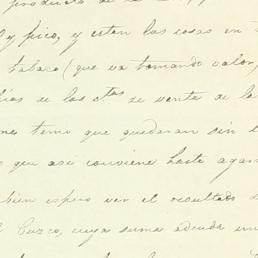 producto de la
y pico, y estan las cosas en
tabaco (que va tomando valor,
de las ctas de venta de la
temo que quedaran sin
que asi conviene hasta agar
bien espero ver el resultado
Cuzco, cuya suma adeuda un